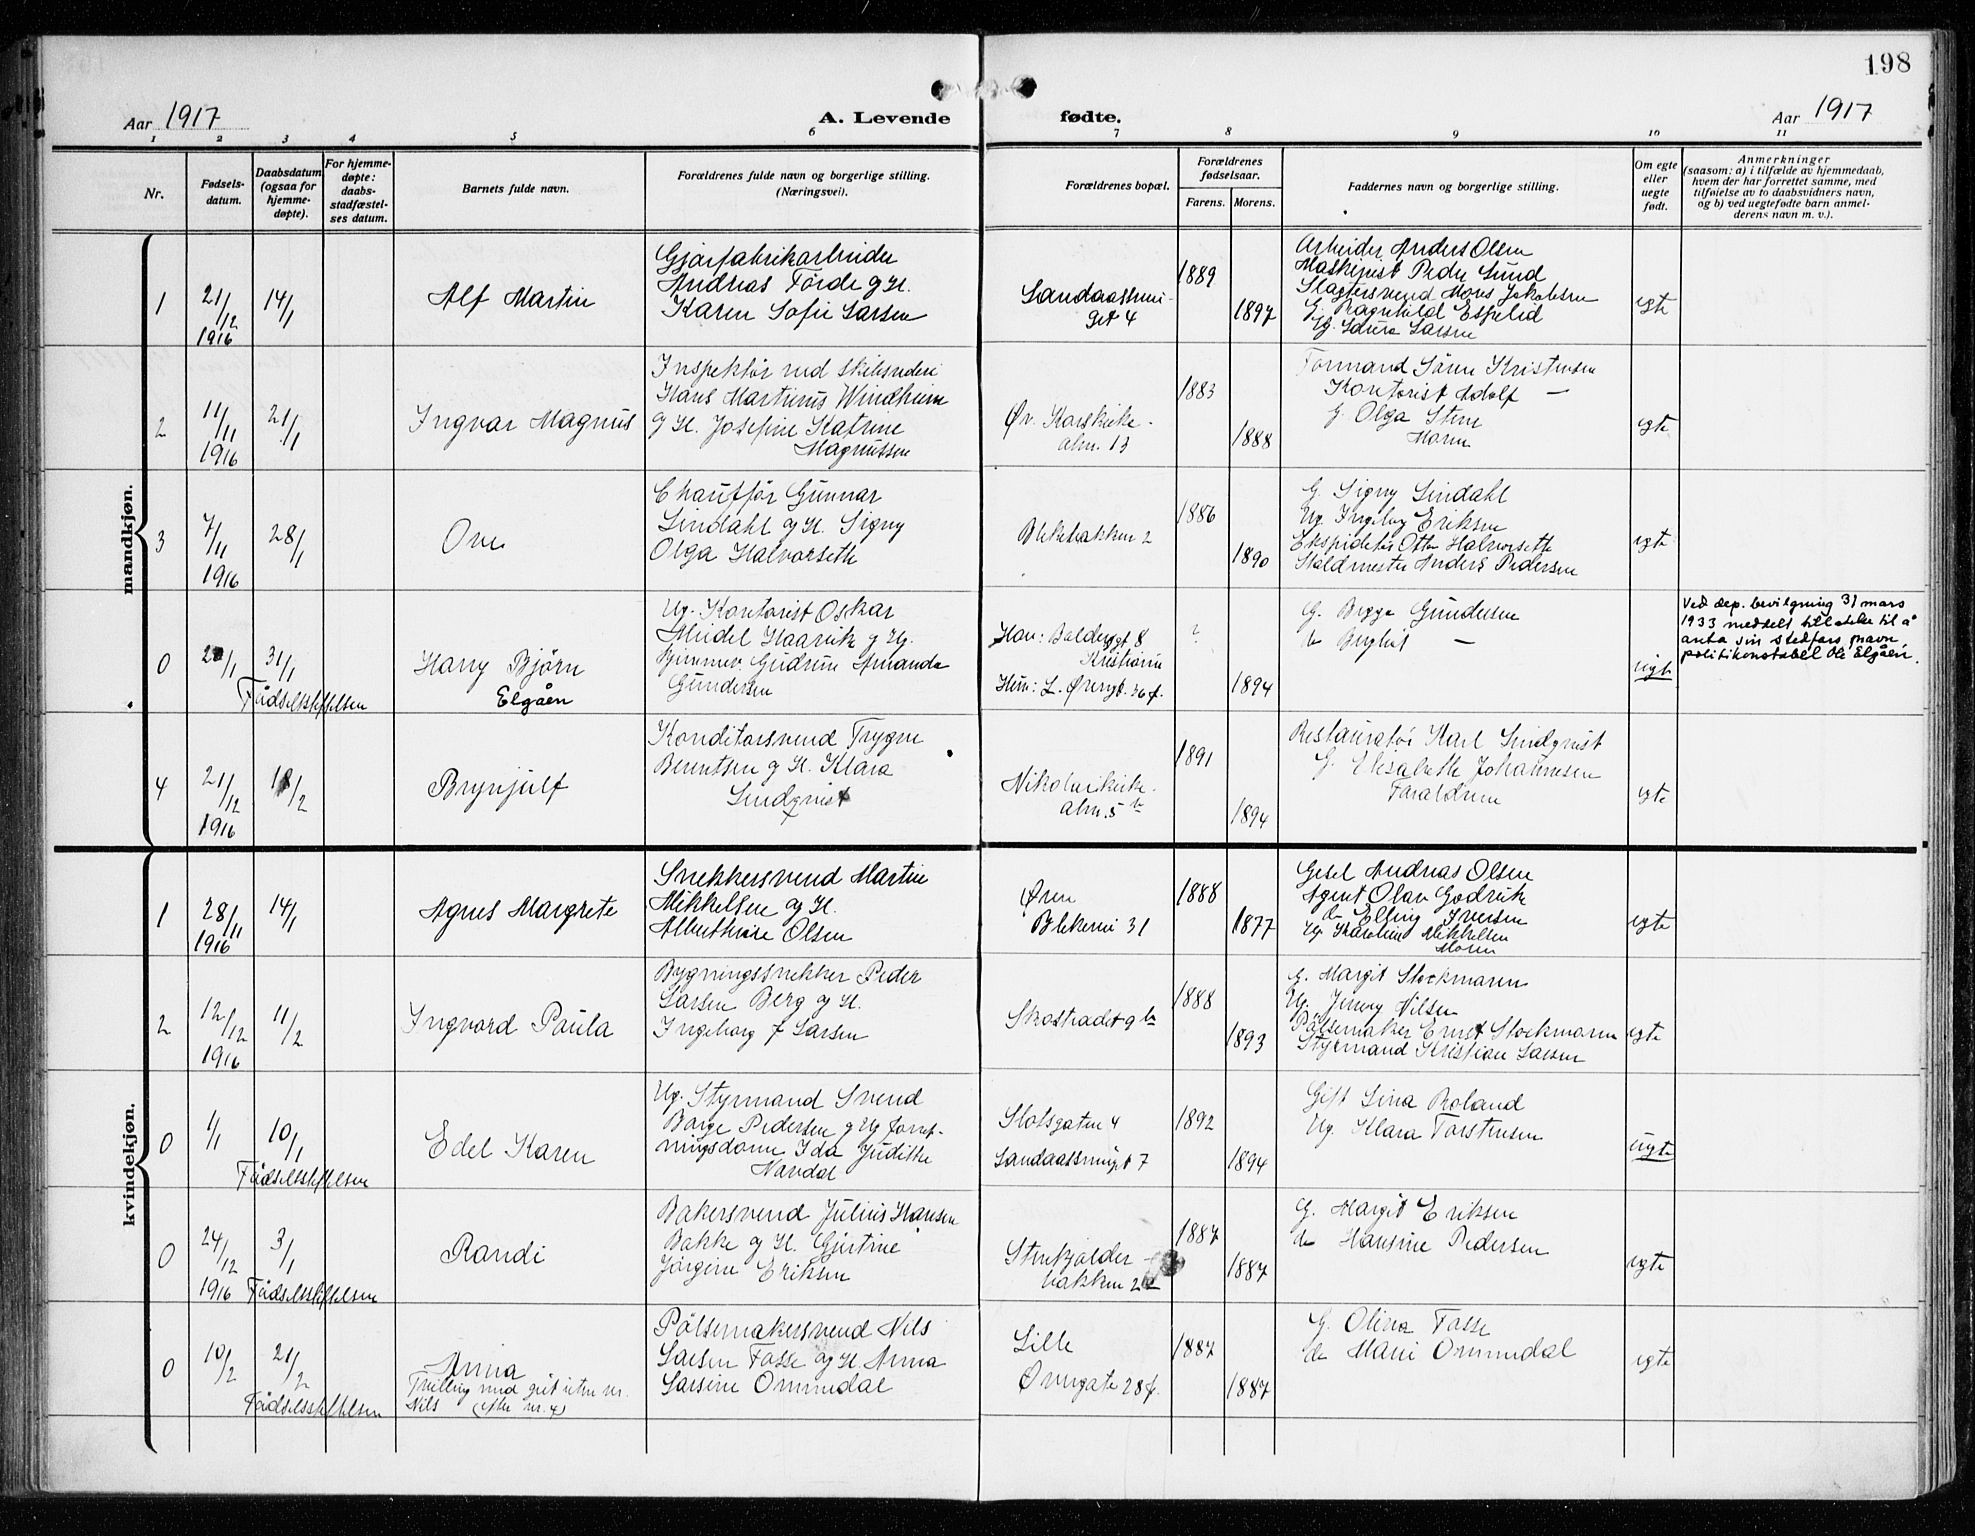 198
Aar 1917
A. Levende fødte.
Aar 1917
1 2 3 4 5 6 7 8 9 10 11
Nr.
Fødsels-
datum.
Daabsdatum
(ogsaa for
hjemme-
døpte).
For hjemme-
døpte:
daabs-
stadfæstel-
ses datum.
Barnets fulde navn.
Forældrenes fulde navn og borgerlige stilling.
(Næringsvei).
Forældrenes bopæl.
Forældrenes
fødselsaar.
Farens. Morens.
Faddernes navn og borgerlige stilling.
Om egte
eller
uegte
født.
Anmerkninger
(saasom: a) i tilfælde av hjemmedaab,
hvem der har forrettet samme, med
tilføielse av to daabsvidners navn,
og b) ved uegtefødte barn anmel-
derens navn m. v.).
mandkjøn.
1
21/12
1916
14/1
Alf Martin
Gjærfabrikarbeider
Andreas Førde og H.
Karen Sofie Larsen
Sandaasmui-
get 4
1889
1897
Arbeider Anders Olsen
Maskinist Peder Lund
Slagtersvend Mons Jakobsen
G. Ragnhild Espelid
Ug. Laura Larsen
egte
2
11/11
1916
21/1
Ingvar Magnus
Inspektør ved skibsrederi
Hans Martinus Windheim
og H. Josefine Katrine
Magnussen
Øv. Korskirke-
alm. 13
1883
1888
Formand Søren Kristensen
Kontorist Adolf —
G. Olga Stene
Moren
egte
3
7/11
1916
28/1
Ove
Chauffør Gunnar
Lindahl og H. Signy
Olga Halvorseth
Blekebakken 2
1886
1890
G. Signy Lindahl
Ug. Ingeborg Eriksen
Ekspeditør Otto Halvorseth
Staldmester Anders Pedersen
egte
0
20/1
31/1
Fødselsstiftelsen
Harry Bjørn
Elgåen
Ug. Kontorist Oskar
Haarvik og Ug.
Gudrun Amanda
Gundersen
Han: Baldersgt 8
Kristiania
Hun: L. Øvregt. 26 f.
?
1894
G. Birgit Gundersen
do Bergliot —
uegte
Ved dep. bevilgning 31 mars
1933 meddelt tillatelse til å
anta sin stedfars navn,
politikonstabel Ole Elgåen.
4
21/12
1916
18/2
Brynjulf
Konditorsvend Trygve
Berentsen og H. Klara
Lindqvist
Nikolaikirke-
alm. 5 b
1891
1894
Restauratør Karl Lindqvist
G. Elisabeth Johannesen
Forældrene
egte
kvindekjøn.
1
28/11
1916
14/1
Agnes Margrete
Snekkersvend Martin
Mikkelsen og H.
Alberthine Olsen
Øvre
Blekevei 31
1888
1877
Gesel Andreas Olsen
Agent Olav Godvik
do Elling Iversen
Ug Karoline Mikkelsen
Moren
egte
2
12/12
1916
11/2
Ingvord Paula
Bygningssnekker Peder
Larsen Berg og H.
Ingeborg f Larsen
Skostrædet 9 b
1888
1893
G. Margit Stockmann
Ug. Jenny Nilsen
Pølsemaker Ernst Stockmann
Styrmand Kristian Larsen
egte
0
1/1
10/1
Fødselsstiftelsen
Edel Karen
Ug. Styrmand Svend
Børge Pedersen og Ug forret-
ningsdame Ida Judithe
Navdal
Slotsgaten 4
Sandaassmuget 7
1892
1894
Gift Lina Roland
Ug. Klara Torstensen
uegte
0
24/12
1916
3/1
Fødselsstiftelsen
Randi
Bakersvend Julius Hansen
Bakke og H. Gjertine
Jørgine Eriksen
Stenkjelder-
bakken 2
1887
1887
G. Margit Eriksen
do Hansine Pedersen
egte
0
10/2
21/2
Fødselsstiftelsen
Anna
Tvilling med gut uten nr.
Nils (efter nr. 4)
Pølsemakersvend Nils
Larsen Fosse og H. Anna
Larsine Ommedal
Lille
Øvregate 28 f.
1887
1887
G. Olina Fosse
do Marie Ommedal
egte